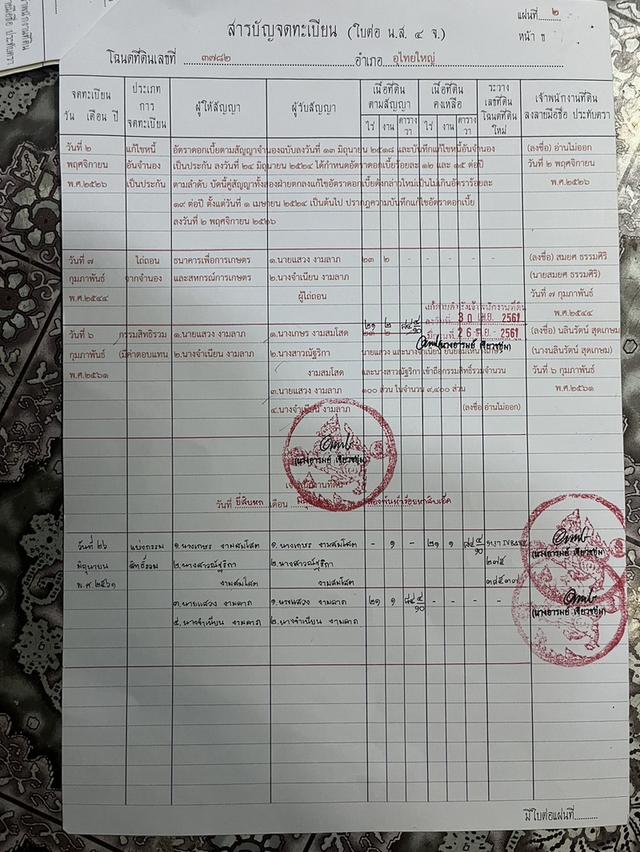 แผ่นที่ ๒
สารบัญจดทะเบียน (ใบต่อ น.ส. ๔ จ.)
หน้า ข
โฉนดที่ดินเลขที่ ๓๗๘๒ อำเภอ อุไทยใหญ่
จดทะเบียน วัน เดือน ปี
ประเภทการจดทะเบียน
ผู้ให้สัญญา
ผู้รับสัญญา
เนื้อที่ดินตามสัญญา
ไร่ งาน ตารางวา
เนื้อที่ดินคงเหลือ
ไร่ งาน ตารางวา
ระวาง เลขที่ดิน โฉนดที่ดินใหม่
เจ้าพนักงานที่ดิน ลงลายมือชื่อ ประทับตรา
วันที่ ๒ แก้ไขหนี้ อัตราดอกเบี้ยตามสัญญาจำนองฉบับลงวันที่ ๑๓ มิถุนายน ๒๕๑๘ และบันทึกแก้ไขหนี้อันจำนอง (ลงชื่อ) อ่านไม่ออก
พฤศจิกายน อันจำนอง เป็นประกัน ลงวันที่ ๒๔ มิถุนายน ๒๕๒๔ ได้กำหนดอัตราดอกเบี้ยร้อยละ ๑๒ และ ๑๕ ต่อปี วันที่ ๒ พฤศจิกายน
พ.ศ.๒๕๒๖ เป็นประกัน ตามลำดับ บัดนี้คู่สัญญาทั้งสองฝ่ายตกลงแก้ไขอัตราดอกเบี้ยดังกล่าวใหม่เป็นไม่เกินอัตราร้อยละ พ.ศ.๒๕๒๖
๑๙ ต่อปี ตั้งแต่วันที่ ๑ เมษายน ๒๕๒๔ เป็นต้นไป ปรากฏความบันทึกแก้ไขอัตราดอกเบี้ย
ลงวันที่ ๒ พฤศจิกายน ๒๕๒๖
วันที่ ๗ ไถ่ถอน ธนาคารเพื่อการเกษตร ๑.นายแสวง งามลาภ ๒๓ ๒ - - - - (ลงชื่อ) สมยศ ธรรมศิริ
กุมภาพันธ์ จากจำนอง และสหกรณ์การเกษตร ๒.นางจำเนียน งามลาภ (นายสมยศ ธรรมศิริ)
พ.ศ.๒๕๔๔ ผู้ไถ่ถอน วันที่ ๗ กุมภาพันธ์
พ.ศ.๒๕๔๔
30 เม.ย. 2561
วันที่ ๖ กรรมสิทธิ์รวม ๑.นายแสวง งามลาภ ๑.นางเกษร งามสมโสด 26 ๒๕61 (ลงชื่อ) นลินรัตน์ สุดเกษม
กุมภาพันธ์ (มีค่าตอบแทน) ๒.นางจำเนียน งามลาภ ๒.นางสาวณัฐริกา (นางนลินรัตน์ สุดเกษม)
พ.ศ.๒๕๖๑ งามสมโสด และนางสาวณัฐริกา เข้าถือกรรมสิทธิ์รวมจำนวน วันที่ ๖ กุมภาพันธ์
๓.นายแสวง งามลาภ ๑๐๐ ส่วน ในจำนวน ๙,๔๐๐ ส่วน พ.ศ.๒๕๖๑
๔.นางจำเนียน งามลาภ (ลงชื่อ อ่านไม่ออก)
วันที่ ยี่สิบหก เดือน
วันที่ ๒๖ แบ่งกรรม ๑.นางเกษร งามสมโสด ๑.นางเกษร งามสมโสด - ๑ - ๒๑ ๑
มิถุนายน สิทธิ์รวม ๒.นางสาวณัฐริกา ๒.นางสาวณัฐริกา ๒๗๕
พ.ศ.๒๕๖๑ งามสมโสด งามสมโสด
๓.นายแสวง งามลาภ ๑.นายแสวง งามลาภ ๒๑ ๑ - - - -
๔.นางจำเนียน งามลาภ ๒.นางจำเนียน งามลาภ
มีใบต่อแผ่นที่